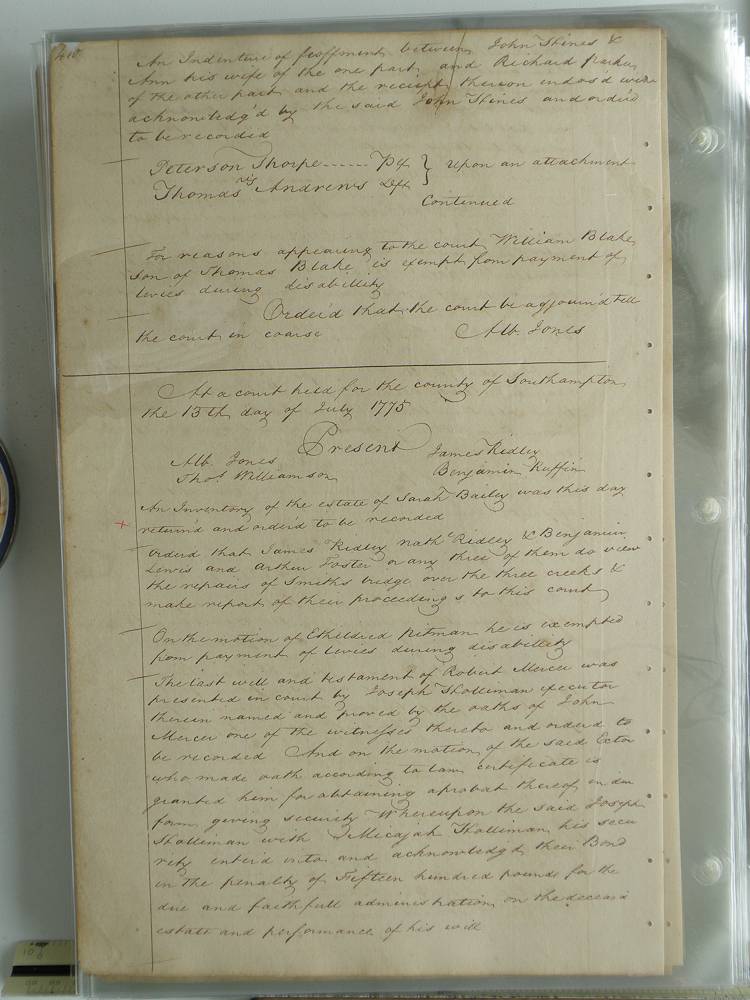 An Indenture of feoffment between John Thines &
Ann his wife of the one part and Richard Parker
of the other part and the receipt thereon indos'd were
acknowledg'd by the said John Thines and orderd
to be recorded
Peterson Thorpe ...... Plt } Upon an attachment
Thomas Andrews Deft
Continued
For reasons appearing to the court William Blake
Son of Thomas Blake is exempt from payment of
levies during disabillity
Order'd that the court be adjourn'd till
the court in coarse Alb. Jones
At a court held for the county of Southampton
the 13th day of July 1775
Present
Alb. Jones James Ridley
Thos Williamson Benjamin Ruffin
An Inventory of the estate of Sarah Bailey was this day
return'd and orderd to be recorded
Orderd that James Ridley Nath Ridley & Benjamin
Lewis and Arthur Foster or any three of them do view
the repairs of Smiths bridge over the three creeks &
make report of their proceedings to this court
On the motion of Etheldred Pitman he is exempted
from payment of levies during disabillety
The last will and testament of Robert Mercer was
presented in court by Joseph Tholliman executor
therein named and proved by the oaths of John
Mercer one of the witnesses thereto and orderd to
be recorded And on the motion of the said Exctor
who made oath according to law certificate is
granted him for abtaining aprobat thereof in due
form giving security Whereupon the said Joseph
Tholliman with Micajah Tholliman his secu
rety enter'd into and acknowledgd their Bond
in the penalty of Fifteen hundred pounds for the
due and faithfull administration on the deceasd
estate and performance of his will